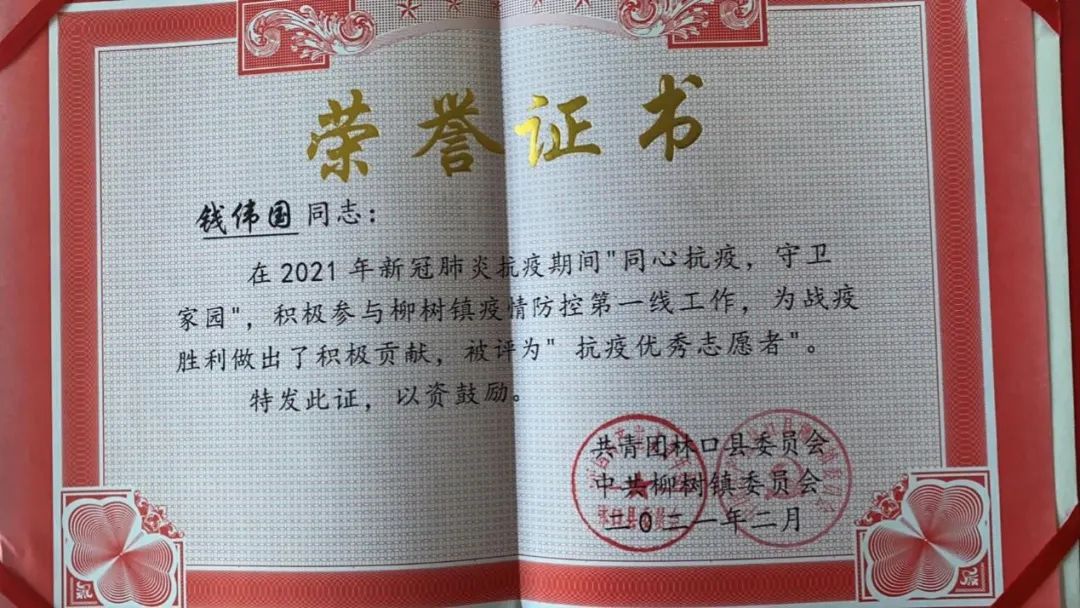 荣誉证书
钱伟国 同志：
在2021年新冠肺炎抗疫期间"同心抗疫，守卫
家园"，积极参与柳树镇疫情防控第一线工作，为战疫
胜利做出了积极贡献，被评为" 抗疫优秀志愿者"。
特发此证，以资鼓励。
共青团林口县委员会
中共柳树镇委员会
二〇二一年二月